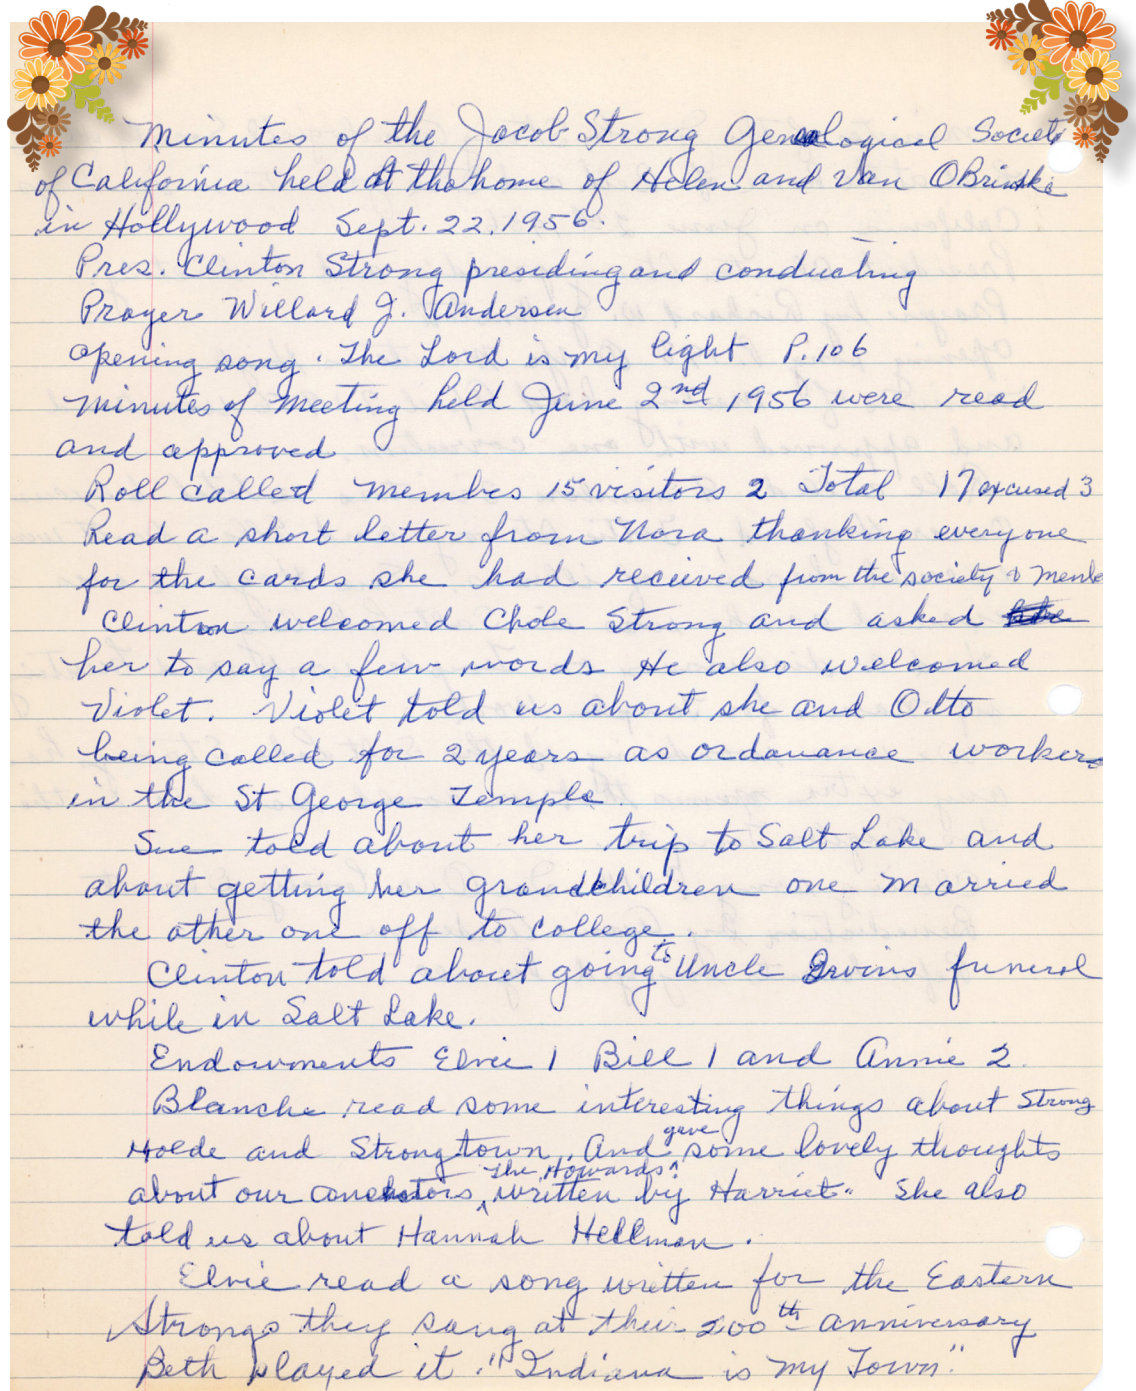 Minutes of the Jacob Strong Genealogical Society
of California held at the home of Helen and Van OBrinske
in Hollywood Sept. 22, 1956.
Pres. Clinton Strong presiding and conducting
Prayer Willard J. Andersen
opening song. The Lord is my light P. 106
Minutes of Meeting held June 2nd 1956 were read
and approved
Roll called membes 15 visitors 2 Total 17 excused 3
Read a short letter from Nora thanking everyone
for the cards she had received from the society & Membe
Clinton welcomed Chole Strong and asked
her to say a few words He also welcomed
Violet. Violet told us about she and Otto
being called for 2 years as ordanance workers
in the St George Temple.
Sue told about her trip to Salt Lake and
about getting her grandchildren one married
the other one off to college.
Clinton told about going to Uncle Irvins funeral
while in Salt Lake.
Endowments Elvie 1 Bill 1 and Annie 2.
Blanche read some interesting things about Strong
Holde and Strongtown. And gave some lovely thoughts
about our ancestors, the Howards written by Harriet." She also
told us about Hannah Hellman.
Elvie read a song written for the Eastern
Strongs they sang at their 200th anniversary
Beth played it. "Indiana is my Town".